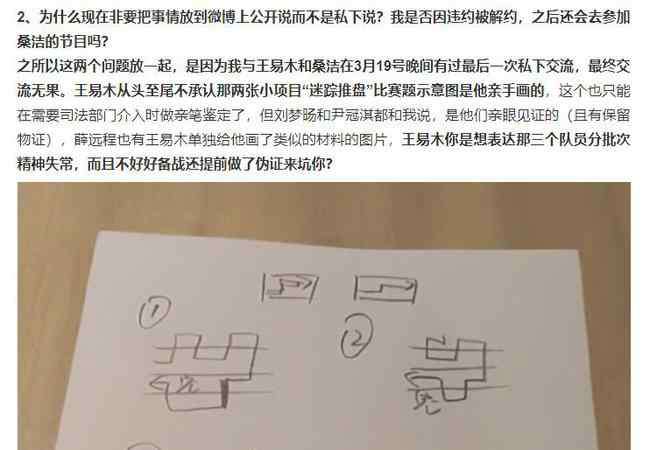 2、为什么现在非要把事情放到微博上公开说而不是私下说？我是否因违约被解约，之后还会去参加
桑洁的节目吗？
之所以这两个问题放一起，是因为我与王易木和桑洁在3月19号晚间有过最后一次私下交流，最终交
流无果。王易木从头至尾不承认那两张小项目“迷踪推盘”比赛题示意图是他亲手画的，这个也只能
在需要司法部门介入时做亲笔鉴定了，但刘梦旸和尹冠淇都和我说，是他们亲眼见证的（且有保留
物证），薛远程也有王易木单独给他画了类似的材料的图片，王易木你是想表达那三个队员分批次
精神失常，而且不好好备战还提前做了伪证来坑你？
①
②